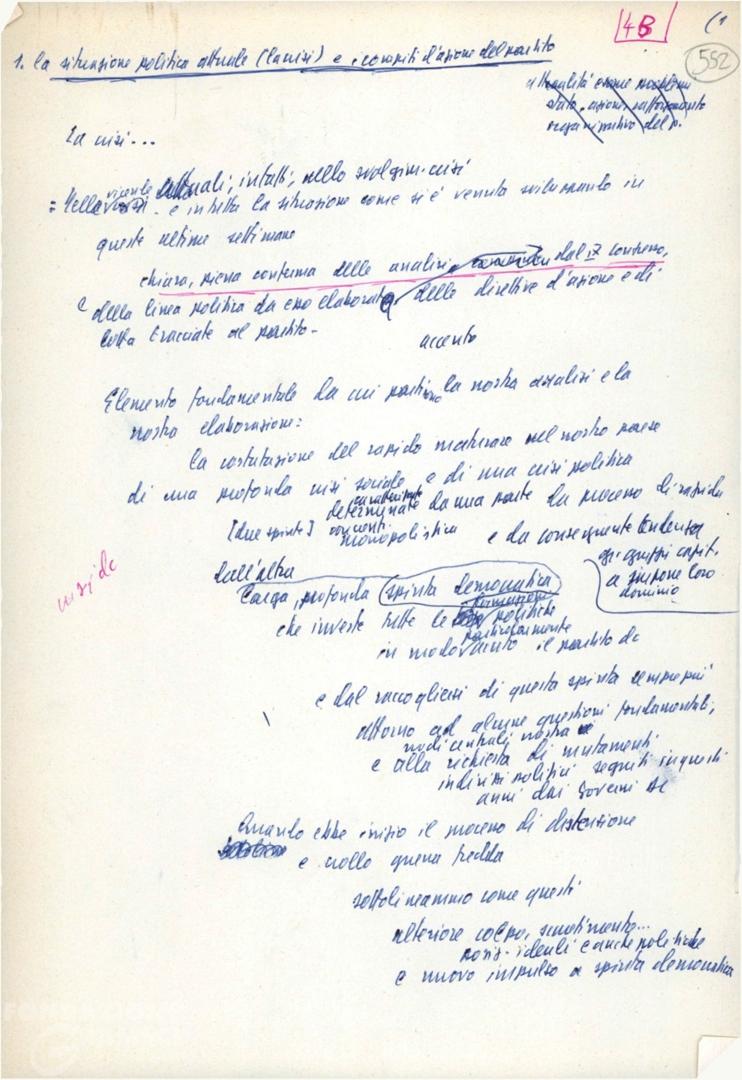 4B
(1
552
1. la situazione politica attuale (la crisi) e i compiti d'azione del partito
attualità come problema
stato, azione, rafforzamento
organizzativo del p.
La crisi...
= Nelle vicende attuali, infatti, nello svolgim. crisi
e in tutta la situazione come si è venuta sviluppando in
queste ultime settimane
chiara, piena conferma delle analisi dal IX congresso,
e della linea politica da esso elaborata, delle direttive d'azione e di
lotta tracciate al partito -
accento
Elemento fondamentale da cui partirono la nostra analisi e la
nostra elaborazione:
la costatazione del rapido maturare nel nostro paese
di una profonda crisi sociale e di una crisi politica
caratterizzate
determinate da una parte da processo di rapida
[due spinte] concent.
monopolistica e da conseguente tendenza
gr. gruppi capit.
a imporre loro
dominio
crisi dc
dall'altra
larga, profonda spinta democratica
che investe tutte le formazioni politiche
particolarmente
in modo acuto il partito dc
e dal raccogliersi di questa spinta sempre più
attorno ad alcune questioni fondamentali,
nodi centrali nostra
e alla richiesta di mutamenti
indirizzi politici seguiti in questi
anni dai governi dc
Quando ebbe inizio il processo di distensione
e crollo guerra fredda
sottolineammo come questi
ulteriore colpo, smentimento...
posiz. ideali e anche politiche
e nuovo impulso a spinta democratica